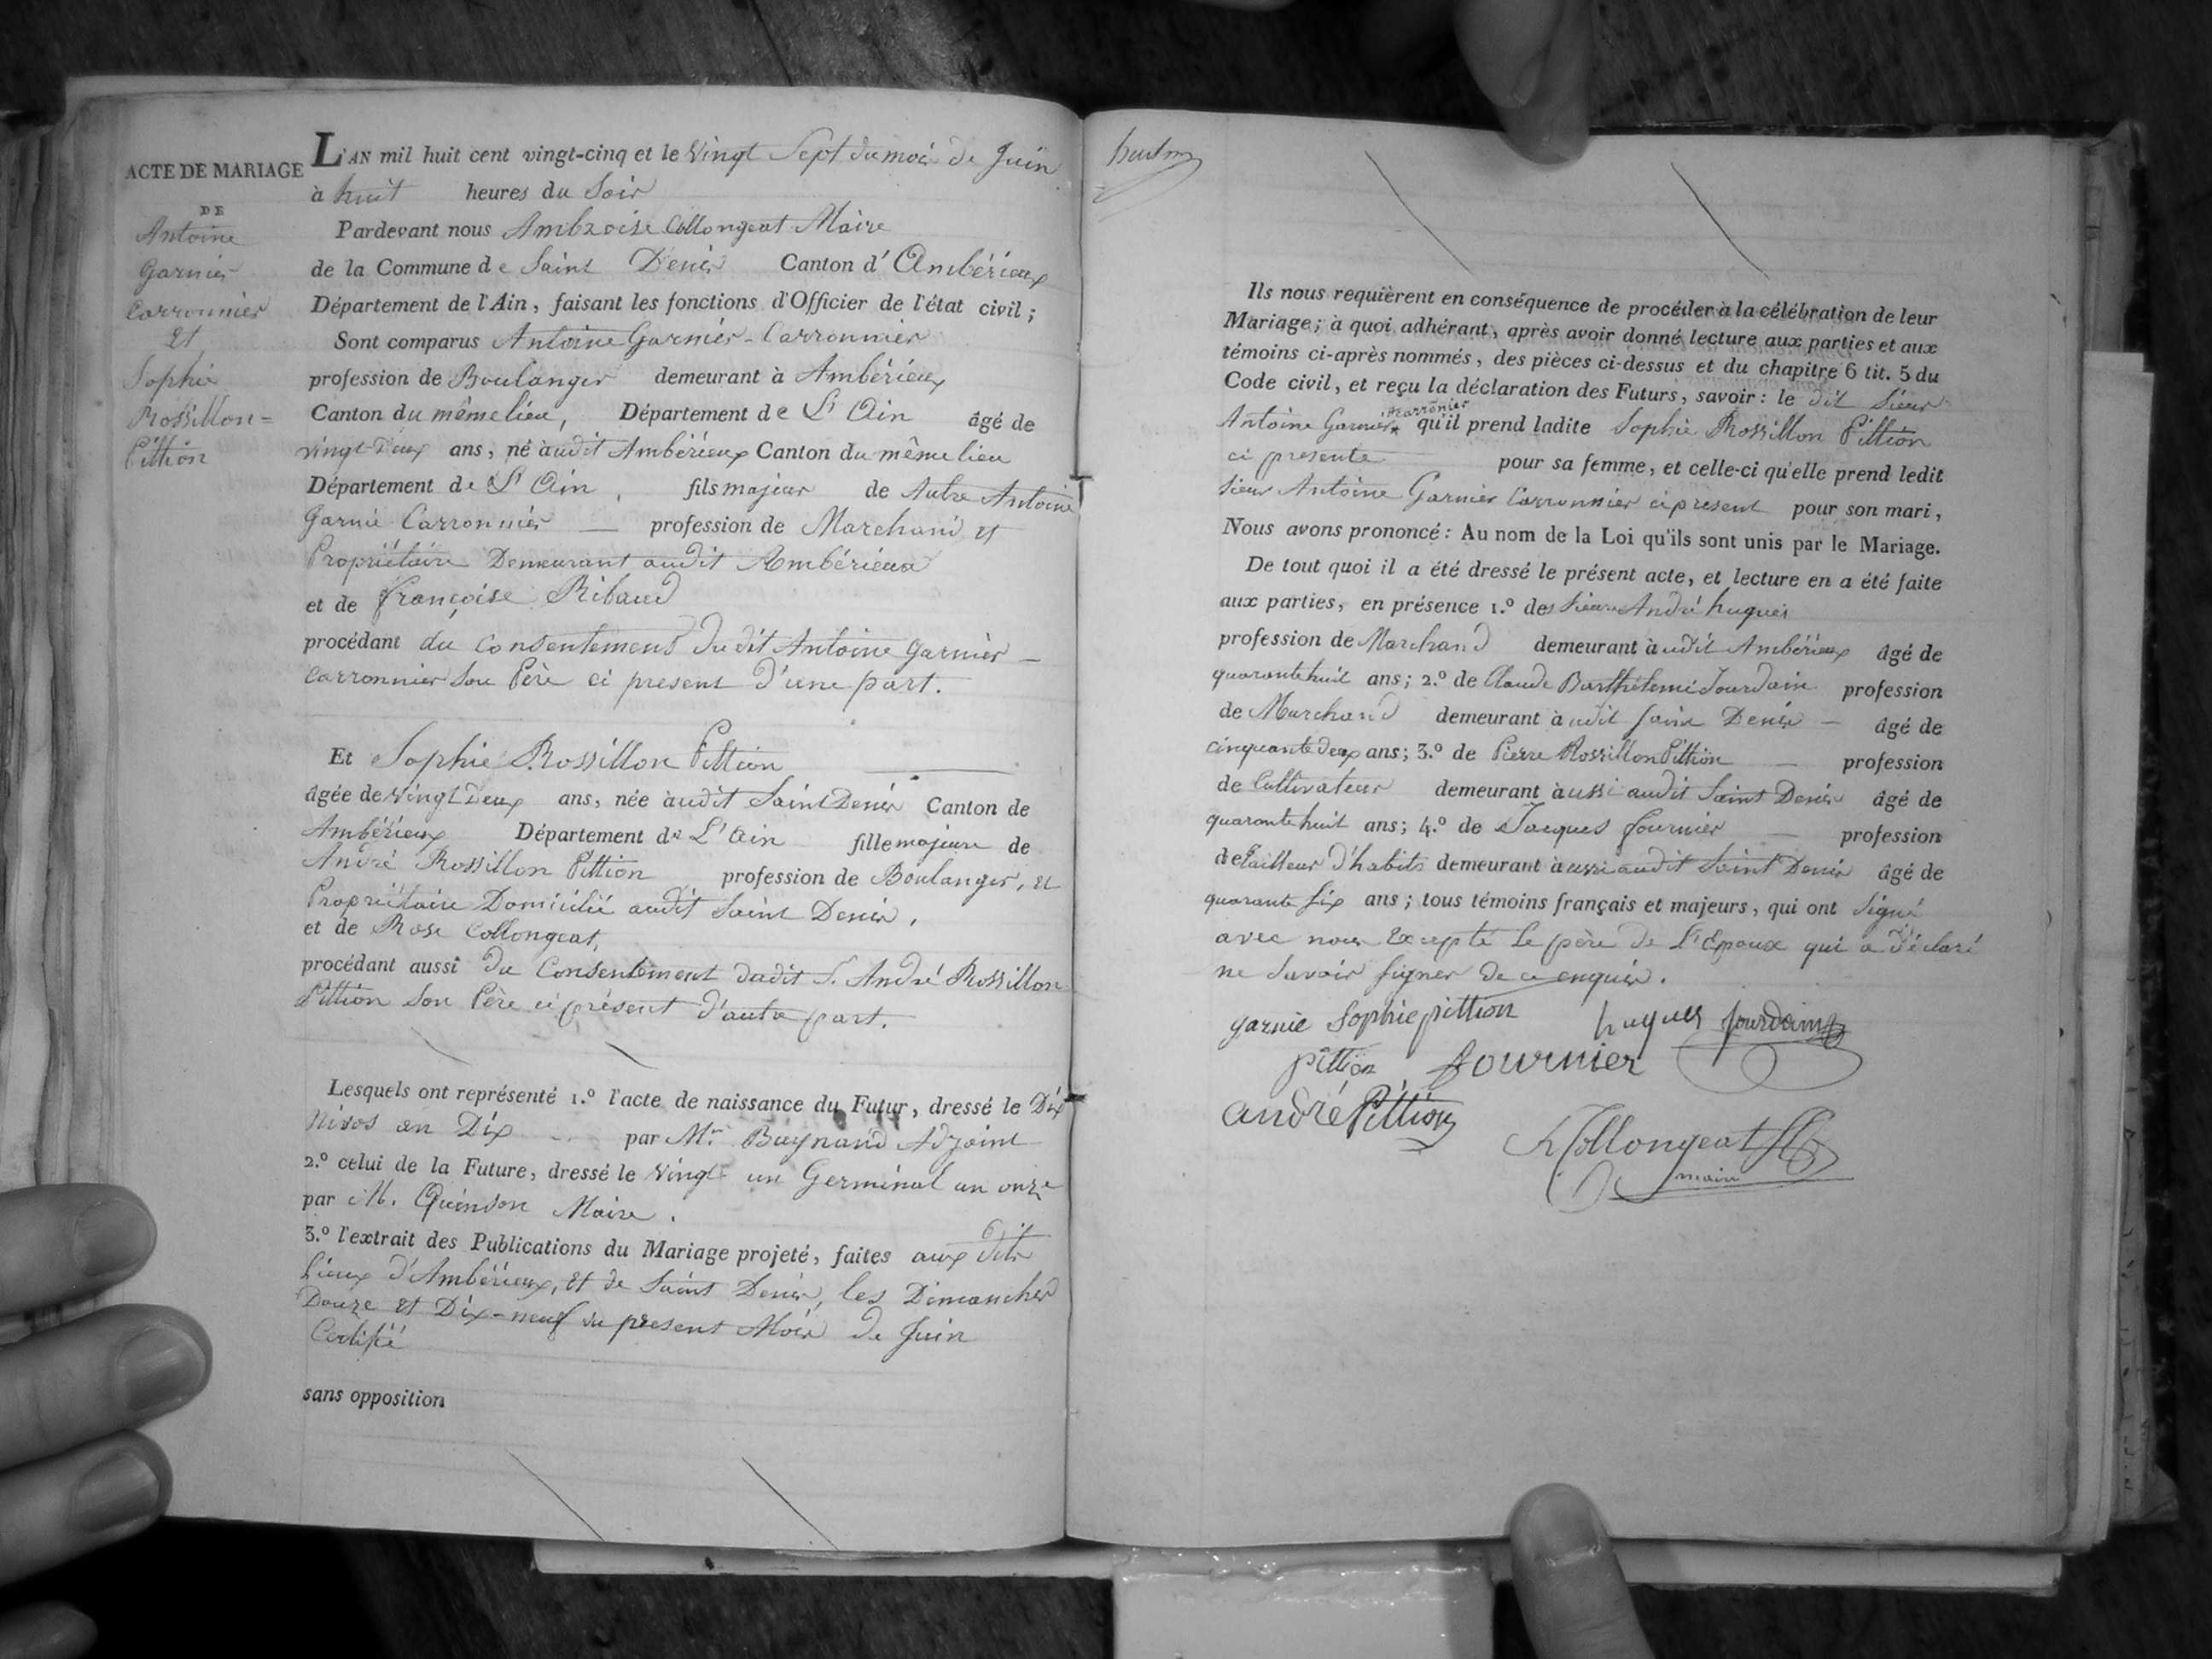 ACTE DE MARIAGE
DE
Antoine
Garnier
Carronnier
Et
Sophie
Rossillon=
Pittion
L'AN mil huit cent vingt-cinq et le Vingt Sept du mois de Juin
à huit heures du Soir
Pardevant nous Ambroise Collongeat Maire
de la Commune de Saint Denis Canton d'Ambérieux
Département de l'Ain, faisant les fonctions d'Officier de l'état civil ;
Sont comparus Antoine Garnier-Carronnier
profession de Boulanger demeurant à Ambérieux
Canton du même lieu, Département de L'Ain âgé de
vingt Deux ans, né audit Ambérieux Canton du même lieu
Département de L'Ain, fils majeur de Autre Antoine
Garnié Carronnier — profession de Marchand et
Propriétaire Demeurant audit Ambérieux
et de françoise Ribaud
procédant du Consentement dudit Antoine Garnier —
Carronnier Son Père ci present d'une part.
Et Sophie Rossillon Pittion
âgée de Vingt Deux ans, née audit Saint Denis Canton de
Ambérieux Département de L'Ain fille majeure de
André Rossillon Pittion profession de Boulanger, et
Propriétaire Domicilié audit Saint Denis,
et de Rose Collongeat,
procédant aussi du Consentement dudit S. André Rossillon
Pittion Son Père ci présent d'autre part.
Lesquels ont représenté 1.º l'acte de naissance du Futur, dressé le Dix
Nivos an Dix par Mr. Buynand Adjoint
2.º celui de la Future, dressé le Vingt un Germinal an onze
par M. Quinson Maire.
3.º l'extrait des Publications du Mariage projeté, faites aux dits
Lieux d'Ambérieux, et de Saint Denis, les Dimanches
Douze et Dix-neuf du present Mois de Juin
Certifié
sans opposition
Ils nous requièrent en conséquence de procéder à la célébration de leur
Mariage ; à quoi adhérant, après avoir donné lecture aux parties et aux
témoins ci-après nommés, des pièces ci-dessus et du chapitre 6 tit. 5 du
Code civil, et reçu la déclaration des Futurs, savoir : le dit Sieur
Antoine Garnier carronier qu'il prend ladite Sophie Rossillon Pittion
ci presente pour sa femme, et celle-ci qu'elle prend ledit
Sieur Antoine Garnier Carronnier ci present pour son mari,
Nous avons prononcé : Au nom de la Loi qu'ils sont unis par le Mariage.
De tout quoi il a été dressé le présent acte, et lecture en a été faite
aux parties, en présence 1.º des Sieurs André hugues
profession de Marchand demeurant audit Ambérieux âgé de
quarante huit ans ; 2.º de Claude Barthélemi Jourdain profession
de Marchand demeurant audit Saint Denis — âgé de
cinquante deux ans ; 3.º de Pierre Rossillon Pittion — profession
de Cultivateur demeurant aussi audit Saint Denis âgé de
quarante huit ans ; 4.º de Jacques fournier — profession
de tailleur d'habits demeurant aussi audit Saint Denis âgé de
quarante Six ans ; tous témoins français et majeurs, qui ont Signé
avec nous Excepté Le père de L'Epoux qui a déclaré
ne Savoir Signer de ce enquis.
garnié Sophie pittion hugues Jourdain
pittion fournier
andré Pittion
Collongeat
maire